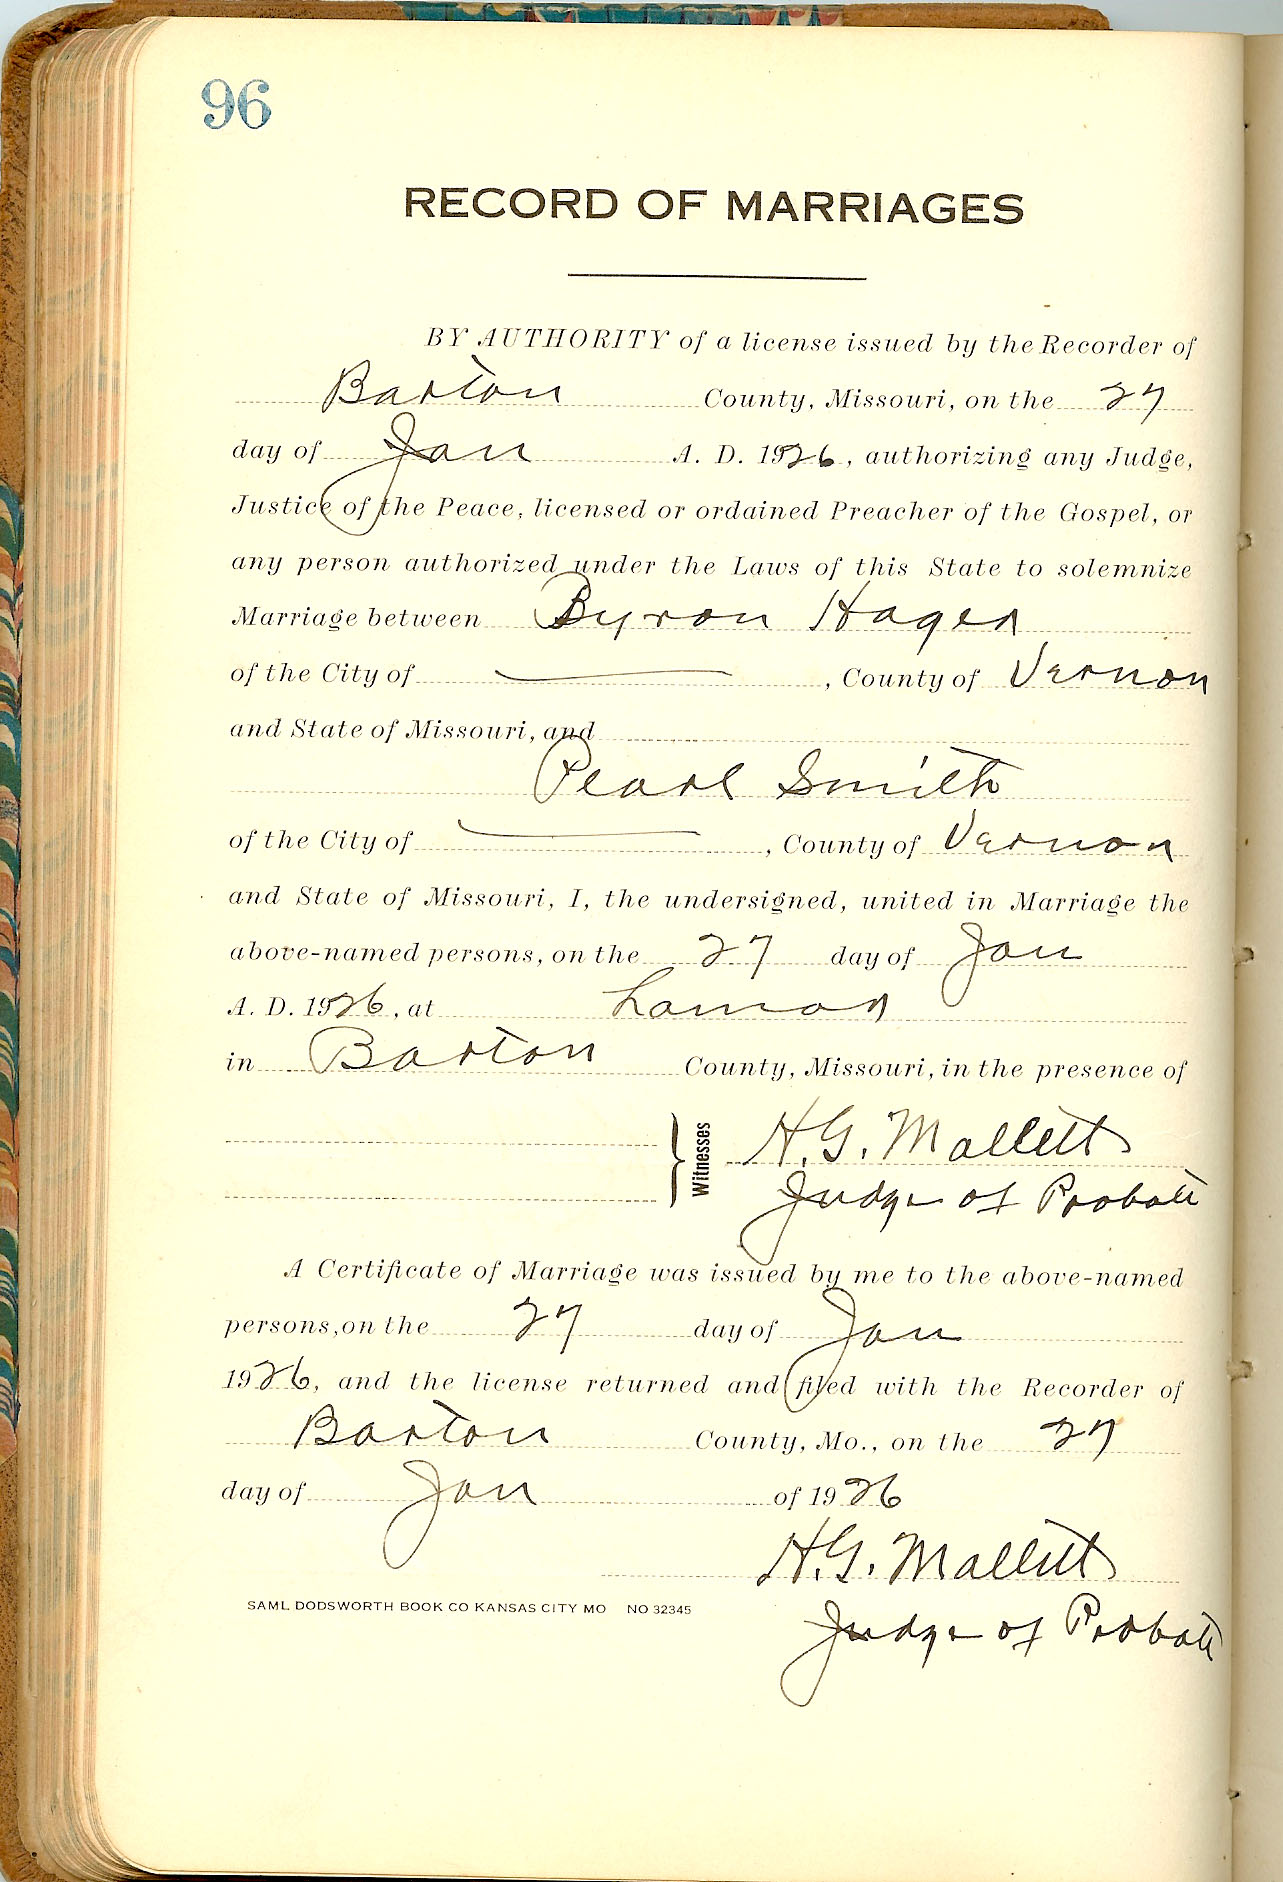 96
RECORD OF MARRIAGES
BY AUTHORITY of a license issued by the Recorder of
Barton County, Missouri, on the 27
day of Jan A. D. 1926, authorizing any Judge,
Justice of the Peace, licensed or ordained Preacher of the Gospel, or
any person authorized under the Laws of this State to solemnize
Marriage between Byron Hager
of the City of —, County of Vernon
and State of Missouri, and
Pearl Smith
of the City of —, County of Vernon
and State of Missouri, I, the undersigned, united in Marriage the
above-named persons, on the 27 day of Jan
A. D. 1926, at Lamar
in Barton County, Missouri, in the presence of
Witnesses H. G. Mallett
Judge of Probate
A Certificate of Marriage was issued by me to the above-named
persons, on the 27 day of Jan
1926, and the license returned and filed with the Recorder of
Barton County, Mo., on the 27
day of Jan of 1926
H. G. Mallett
SAML DODSWORTH BOOK CO KANSAS CITY MO NO 32345
Judge of Probate